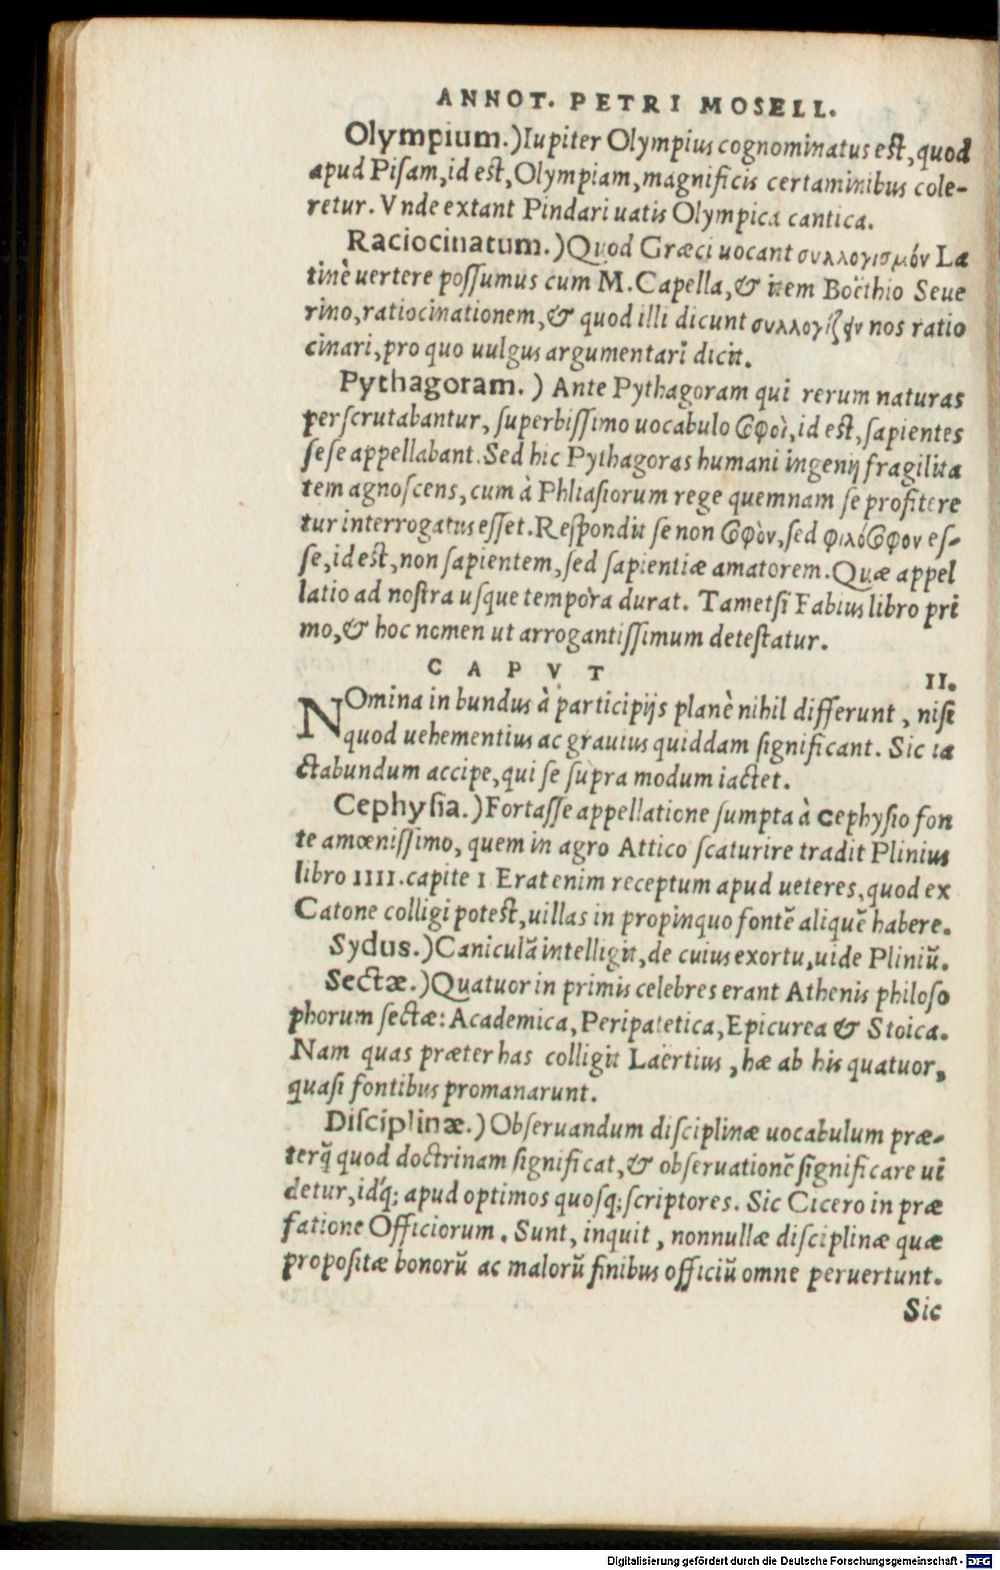 ANNOT. PETRI MOSELL.
Olympium.) Iupiter Olympius cognominatus eſt, quod
apud Piſam, id eſt, Olympiam, magnificis certaminibus cole-
retur. Vnde extant Pindari uatis Olympica cantica.
Raciocinatum.) Quod Græci uocant συλλογισμόν La
tinè uertere poſſumus cum M. Capella, & item Boëthio Seue
rino, ratiocinationem, & quod illi dicunt συλλογίζειν nos ratio
cinari, pro quo uulgus argumentari dicit.
Pythagoram.) Ante Pythagoram qui rerum naturas
perſcrutabantur, ſuperbiſſimo uocabulo σοφοὶ, id eſt, ſapientes
ſeſe appellabant. Sed hic Pythagoras humani ingenij fragilita
tem agnoſcens, cum à Phliaſiorum rege quemnam ſe profitere
tur interrogatus eſſet. Reſpondit ſe non σοφὸν, ſed φιλόσοφον eſ-
ſe, id eſt, non ſapientem, ſed ſapientiæ amatorem. Quæ appel
latio ad noſtra uſque tempora durat. Tametſi Fabius libro pri
mo, & hoc nomen ut arrogantiſſimum deteſtatur.
CAPVT II.
NOmina in bundus à participijs planè nihil differunt, niſi
quod uehementius ac grauius quiddam ſignificant. Sic ia
ctabundum accipe, qui ſe ſupra modum iactet.
Cephyſia.) Fortaſſe appellatione ſumpta à Cephyſio fon
te amœniſſimo, quem in agro Attico ſcaturire tradit Plinius
libro IIII. capite I Erat enim receptum apud ueteres, quod ex
Catone colligi poteſt, uillas in propinquo fontē aliquē habere.
Sydus.) Caniculā intelligit, de cuius exortu, uide Pliniū.
Sectæ.) Quatuor in primis celebres erant Athenis philoſo
phorum ſectæ: Academica, Peripatetica, Epicurea & Stoica.
Nam quas præter has colligit Laërtius, hæ ab his quatuor,
quaſi fontibus promanarunt.
Diſciplinæ.) Obſeruandum diſciplinæ uocabulum præ-
terq̃ quod doctrinam ſignificat, & obſeruationē ſignificare ui
detur, idq́; apud optimos quoſq; ſcriptores. Sic Cicero in præ
fatione Officiorum. Sunt, inquit, nonnullæ diſciplinæ quæ
propoſitæ bonorū ac malorū finibus officiū omne peruertunt.
Sic
Digitalisierung gefördert durch die Deutsche Forschungsgemeinschaft - DFG